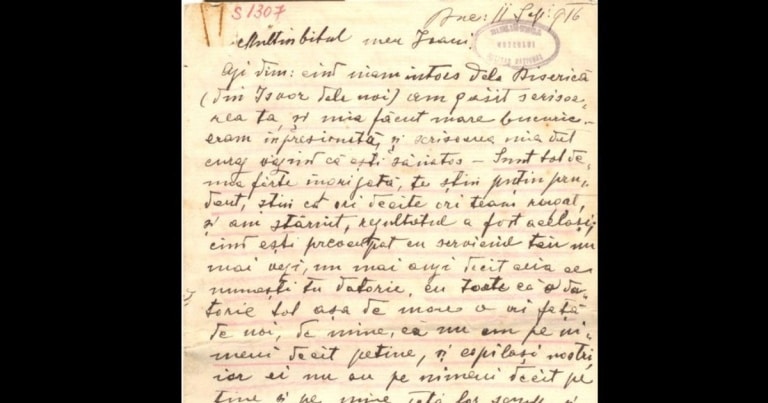 S 1307
Buc: 11 Sep: 916
Mult iubitul meu Ioani
Azi dim: cind m'am intors dela Biserică
(din Isvor dela noi) am găsit scrisoa-
rea ta, și mia făcut mare bucurie
eram inpresionată, și scrisoarea mia dat
curaj văzind că ești sănatos – Sunt tot de-
una forte ingrijată, te știu putin pru-
dent, știu că ori decite ori team rugat,
și am stăruit, rezultatul a fost acelasi,
cind ești preocupat cu serviciul tău nu
mai vezi, nu mai auzi decit ceia ce
numești tu datorie, cu toate că o da-
torie tot asa de mare o ai față
de noi, de mine, că nu am pe ni-
meni decit petine, și copilasi nostri
iar ei nu au pe nimeni decit pe
tine și pe mine